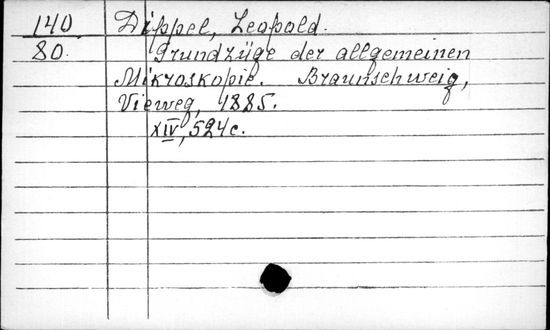 140 Dippel, Leopold.
80. Grundzüge der allgemeinen
Mikroskopie. Braunschweig,
Vieweg, 1885.
XIV, 524 c.